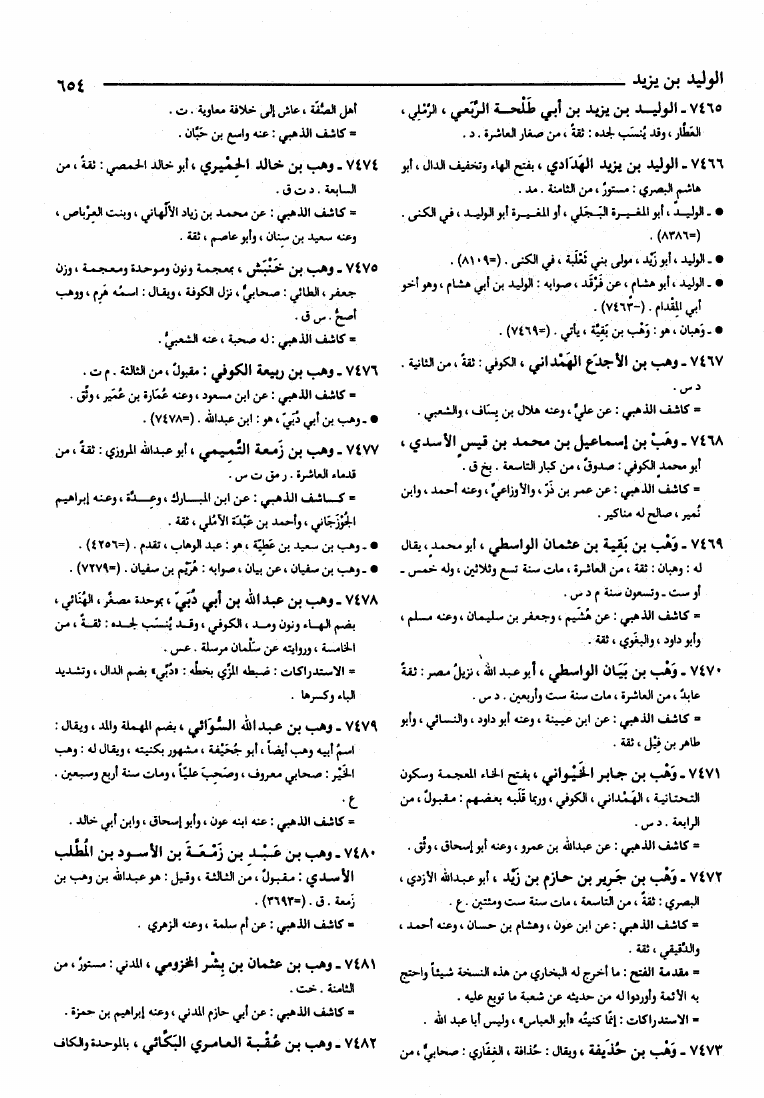 الوليد بن يزيد
٦٥٤
٧٤٦٥ ـ الوليـد بـن يزيد بن أبي طَلْحـة الرَّبَعي ، الرَّمْلي ،
العَطَّار ، وقد يُنسَب لجده : ثقةٌ ، من صغار العاشرة . د .
٧٤٦٦ ـ الوليد بن يزيد الهَدَادي ، بفتح الهاء وتخفيف الدال ، أبو
هاشم البصري : مستورٌ ، من الثامنة . مد .
● ـ الوليـد ، أبو المغـيـرة البَـجَلي ، أو المغيرة أبو الوليـد ، في الكنى .
(=٨٣٨٦) .
● ـ الوليد ، أبو زَيْد ، مولى بني ثَعْلَبة ، في الكنى . (=٨١٠٩) .
● ـ الوليد ، أبو هشام ، عن فَرْقَد ، صوابه : الوليد بن أبي هشام ، وهو أخو
أبي المِقْدام . (=٧٤٦٣) .
● ـ وَهْبان ، هو : وَهْب بن بَقِيَّة ، يأتي . (=٧٤٦٩) .
٧٤٦٧ ـ وهب بن الأجدَع الهَمْداني ، الكوفي : ثقةٌ ، من الثانية .
د س .
= كاشف الذهبي : عن عليٍّ ، وعنه هلال بن يِسَاف ، والشعبي .
٧٤٦٨ ـ وَهَبْ بن إسماعيل بن محمد بن قيسٍ الأسدي ،
أبو محمد الكوفي : صدوقٌ ، من كبار التاسعة . بخ ق .
= كاشف الذهبي : عن عمر بن ذَرّ ، والأوزاعيِّ ، وعنه أحمد ، وابن
نُمير ، صالح له مناكير .
٧٤٦٩ ـ وَهْب بن بَقِية بن عثمان الواسطي ، أبو محمد ، يقال
له : وهبان : ثقة ، من العاشرة ، مات سنة تسع وثلاثين ، وله خمس ـ
أو ست ـ وتسعون سنة م د س .
= كاشف الذهبي : عن هُشَيم ، وجعفر بن سليمان ، وعنه مسلم ،
وأبو داود ، والبغوي ، ثقة .
٧٤٧٠ ـ وَهْب بن بَيَان الواسطي ، أبو عبد الله ، نزيلُ مصر : ثقةٌ
عابدٌ ، من العاشرة ، مات سنة ست وأربعين . د س .
= كاشف الذهبي : عن ابن عيينة ، وعنه أبو داود ، والنسائي ، وأبو
طاهر بن فِيْل ، ثقة .
٧٤٧١ ـ وَهْب بن جابر الخَيْواني ، بفتح الخاء المعجمة وسكون
التحتانية ، الهَمْداني ، الكوفي ، وربما قَلَبه بعضهم : مقبولٌ ، من
الرابعة . د س .
= كاشف الذهبي : عن عبدالله بن عمرو ، وعنه أبو إسحاق ، وثّق .
٧٤٧٢ ـ وَهْب بن جَرير بن حازم بن زَيْد ، أبو عبدالله الأزدي ،
البصري : ثقةٌ ، من التاسعة ، مات سنة ست ومئتين . ع .
= كاشف الذهبي : عن ابن عون ، وهشام بن حسان ، وعنه أحمد ،
والدَّقيقي ، ثقة .
= مقدمة الفتح : ما أخرج له البخاري من هذه النسخة شيئاً واحتج
به الأئمة وأوردوا له من حديثه عن شعبة ما توبع عليه .
= الاستدراكات : إنَّما كنيتُه «أبو العباس» ، وليس أبا عبد الله .
٧٤٧٣ ـ وَهْب بن حُذَيفة ، ويقال : حُذافة ، الغِفَاري : صحابيٌّ ، من
أهل الصُفَّة ، عاش إلى خلافة معاوية . ت .
= كاشف الذهبي : عنه واسع بن حَبَّان .
٧٤٧٤ ـ وهب بن خالد الحِمْيري ، أبو خالد الحمصي : ثقةٌ ، من
السابعة . د ت ق .
= كاشف الذهبي : عن محمد بن زياد الألْهاني ، وبنت العِرْباض ،
وعنه سعيد بن سِنان ، وأبو عاصم ، ثقة .
٧٤٧٥ ـ وهب بن خَنْبَش ، بمعجمة ونون وموحدة ومعجمة ، وزن
جعفر ، الطائي : صحابيٌّ ، نزل الكوفة ، ويقال : اسمُه هَرِم ، ووهب
أصحُّ . س ق .
= كاشف الذهبي : له صحبة ، عنه الشعبيُّ .
٧٤٧٦ ـ وهب بن ربيعة الكوفي : مقبولٌ ، من الثالثة . م ت .
= كاشف الذهبي : عن ابن مسعود ، وعنه عُمَارة بن عُمَير ، وثّق .
● ـ وهب بن أبي دُبَيّ ، هو : ابن عبدالله . (=٧٤٧٨) .
٧٤٧٧ ـ وهب بن زَمعة التَّميمي ، أبو عبدالله المروزي : ثقةٌ ، من
قدماء العاشرة . ر مق ت س .
= كـاشف الذهبي : عن ابن المبـارك ، وعِـدَّة ، وعنـه إبراهيم
الجُوْزَجاني ، وأحمد بن عَبْدَة الآمُلي ، ثقة .
● ـ وهب بن سعيد بن عَطِيَّة ، هو : عبد الوهاب ، تقدم . (=٤٢٥٦) .
● ـ وهب بن سفيان ، عن بيان ، صوابه : هُرَيْم بن سفيان . (=٧٢٧٩) .
٧٤٧٨ ـ وهب بن عبدالله بن أبي دُبَيّ ، بموحدة مصغَّر ، الهُنَائي ،
بضم الهـاء ونون ومـد ، الكوفي ، وقـد يُنسَـب لجده : ثقـةٌ ، من
الخامسة ، وروايته عن سَلْمان مرسلة . عس .
= الاستدراكات : ضبطه المزّي بخطّه : «دُبِّي» بضم الدال ، وتشديد
الباء وكسرها .
٧٤٧٩ ـ وهب بن عبدالله السُّوَائي ، بضم المهملة والمد ، ويقال :
اسمُ أبيه وهب أيضاً ، أبو جُحَيْفة ، مشهور بكنيته ، ويقال له : وهب
الخَيْر : صحابي معروف ، وصَحِبَ عليّاً ، ومات سنة أربع وسبعين .
ع .
= كاشف الذهبي : عنه ابنه عون ، وأبو إسحاق ، وابن أبي خالد .
٧٤٨٠ ـ وهـب بـن عَـبْـدِ بـن زَمْـعَـةَ بـن الأسـود بـن المُطَّلب
الأسدي : مقبـولٌ ، من الثالثة ، وقيل : هو عبدالله بن وهب بن
زمعة . ق . (=٣٦٩٣) .
= كاشف الذهبي : عن أم سلمة ، وعنه الزهري .
٧٤٨١ ـ وهب بن عثمان بن بِشْر المخزومي ، المدني : مستورٌ ، من
الثامنة . خت .
= كاشف الذهبي : عن أبي حازم المدني ، وعنه إبراهيم بن حمزة .
٧٤٨٢ ـ وهب بن عُقْبة العامري البَكَّائي ، بالموحدة والكاف